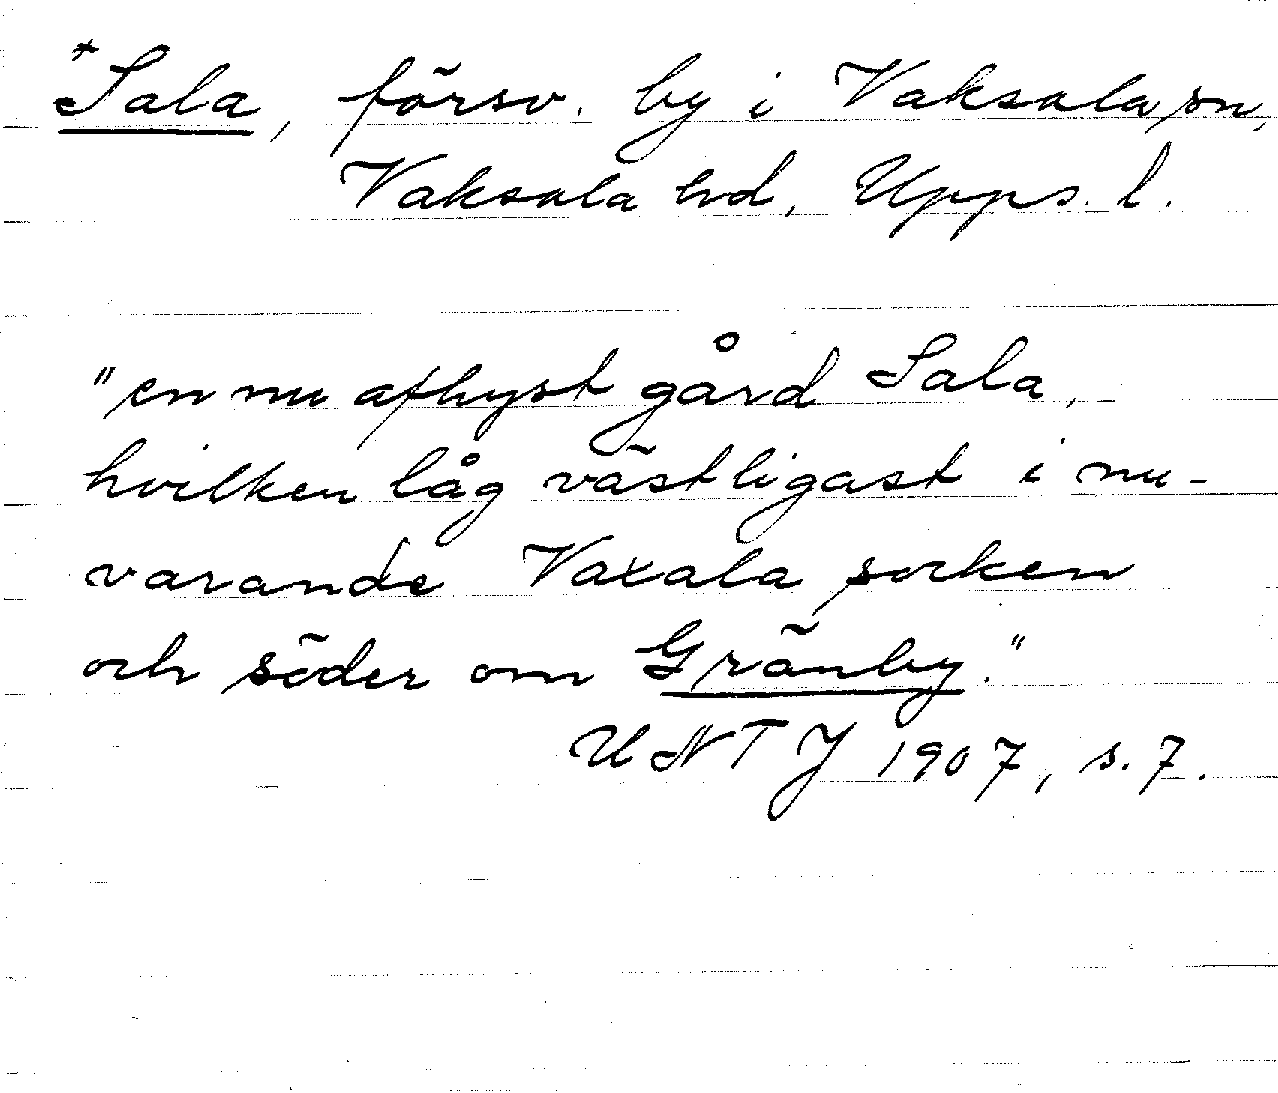 *Sala, försv. by i Vaksala sn,
Vaksala hd, Upps. l.
"en nu afhyst gård Sala,
hvilken låg västligast i nu-
varande Vaxala socken
och söder om Gränby."
UNTJ 1907, s. 7.